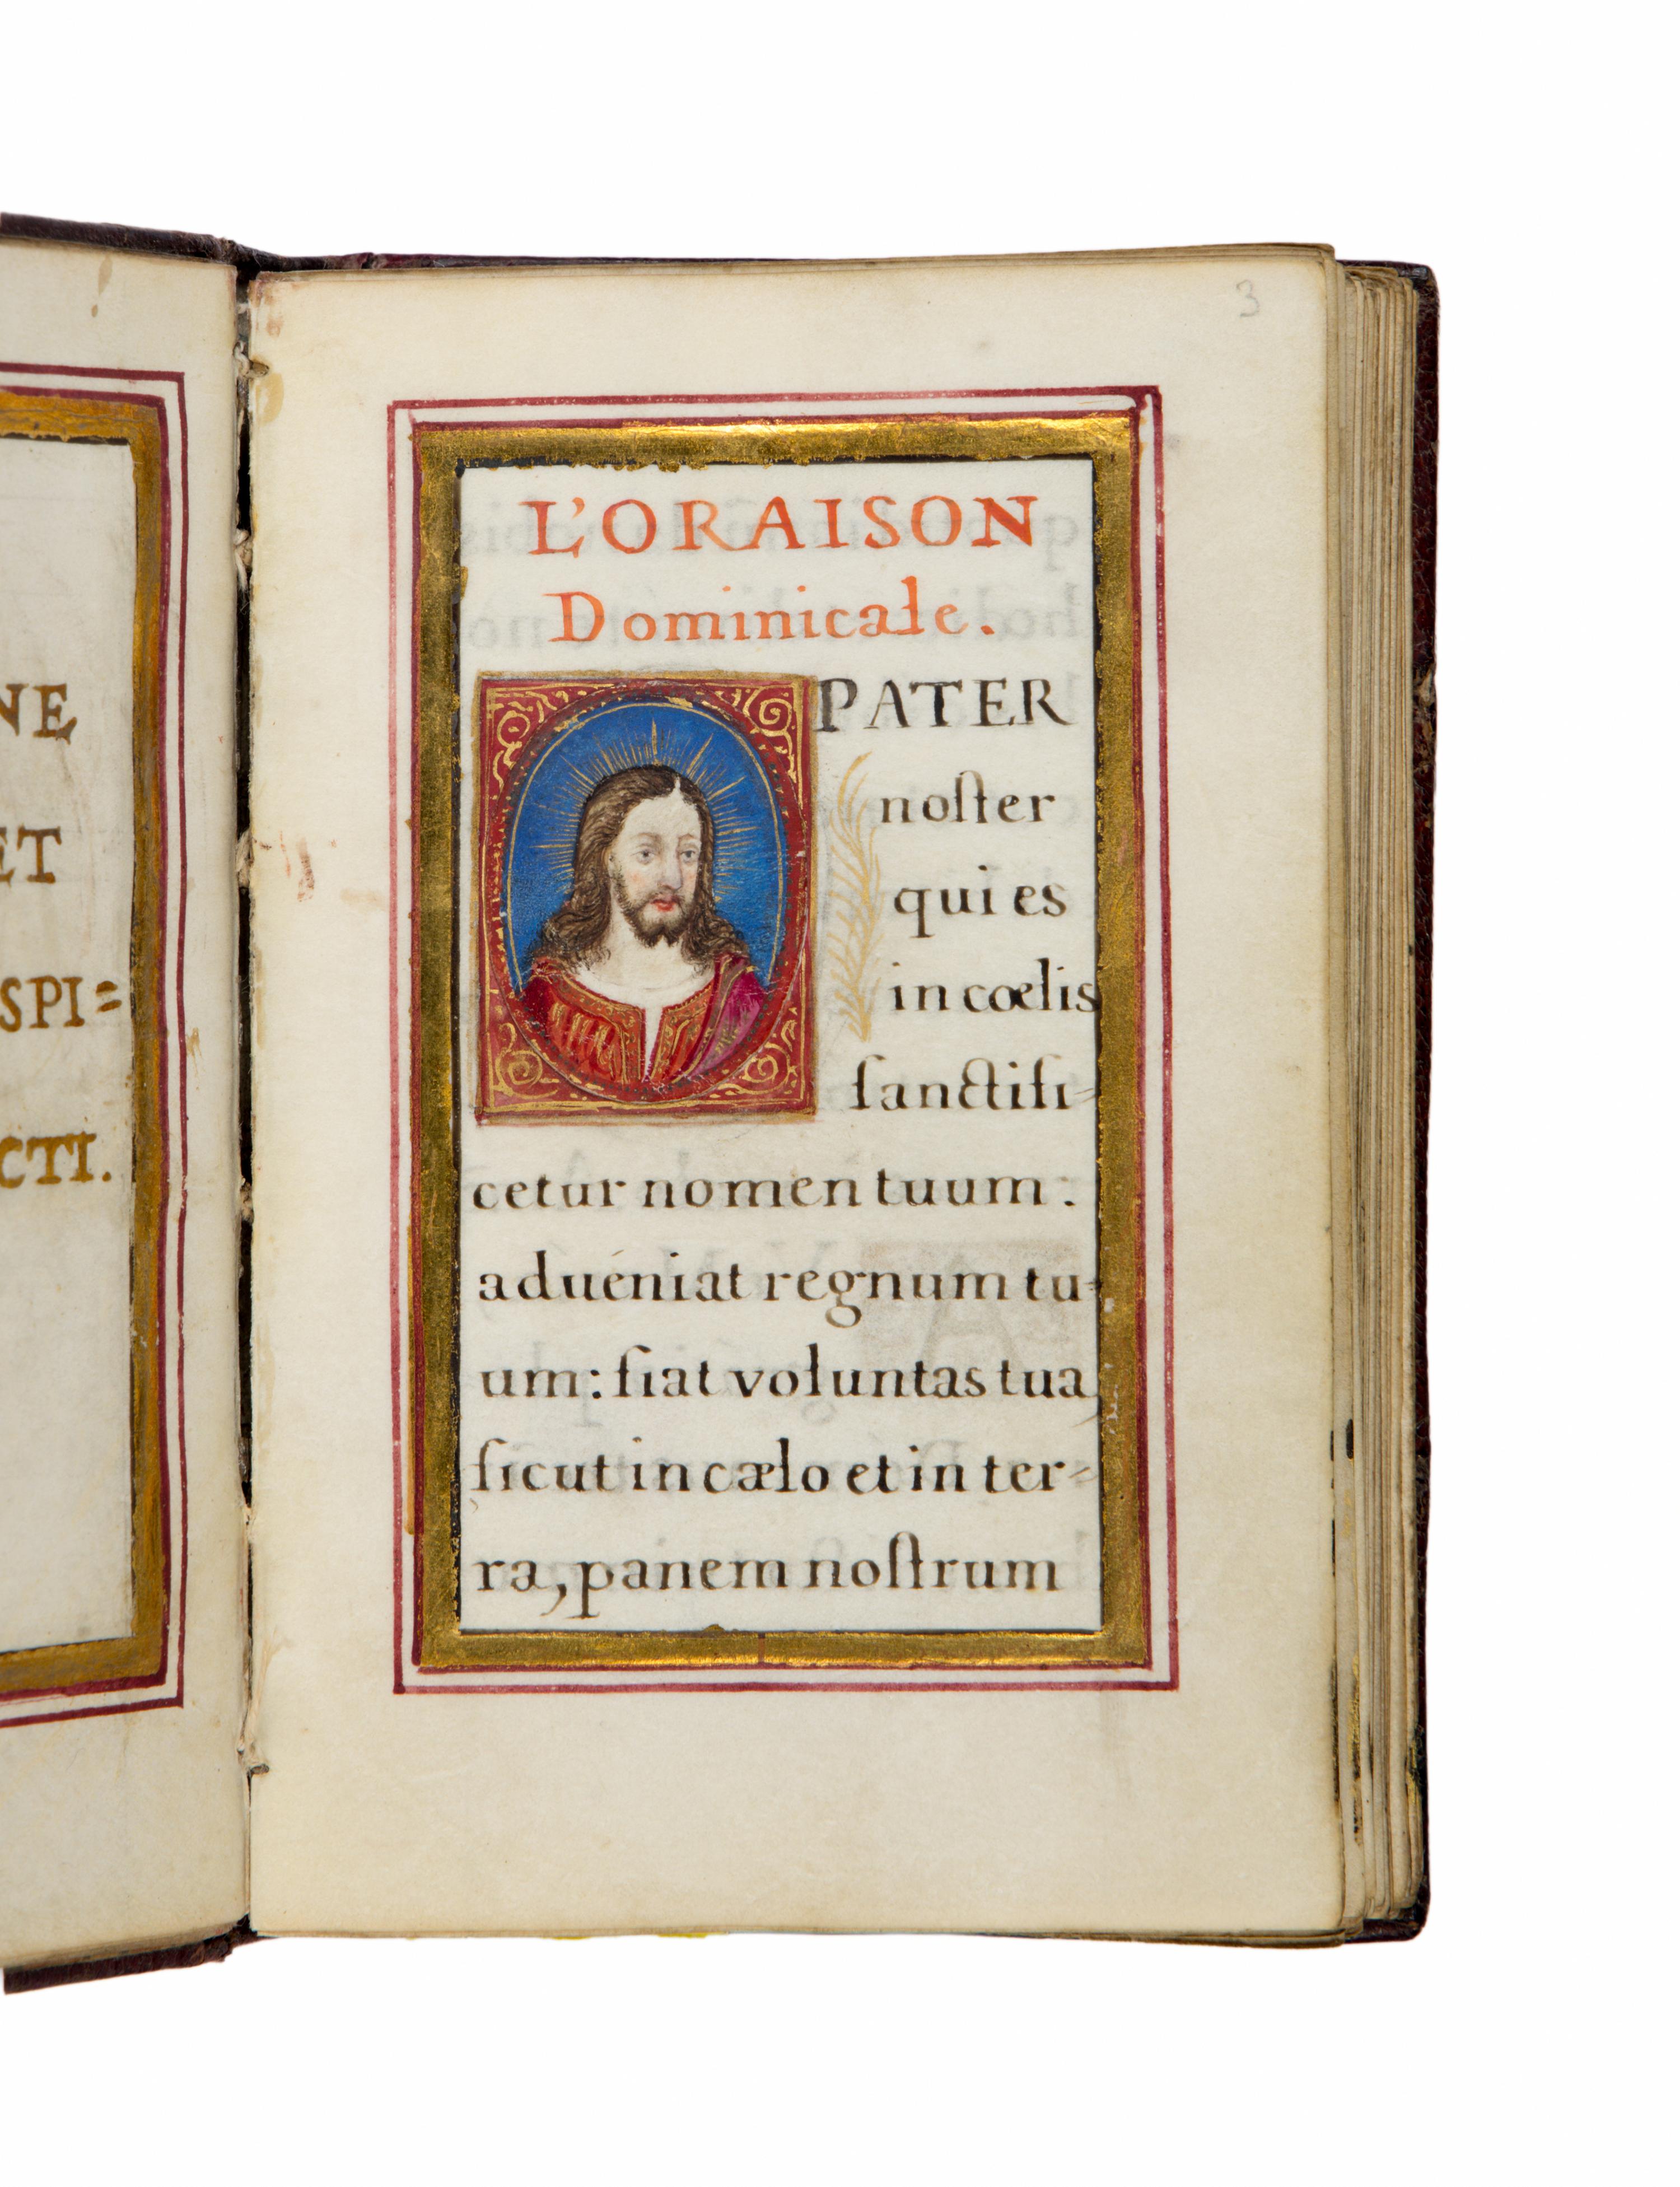 NE
ET
SPI=
CTI.
3
L'ORAISON
Dominicale.
PATER
noſter
qui es
in cœlis
ſanctifi-
cetur nomen tuum:
aduéniat regnum tu-
um: fiat voluntas tua
ſicut in cælo et in ter-
ra, panem noſtrum